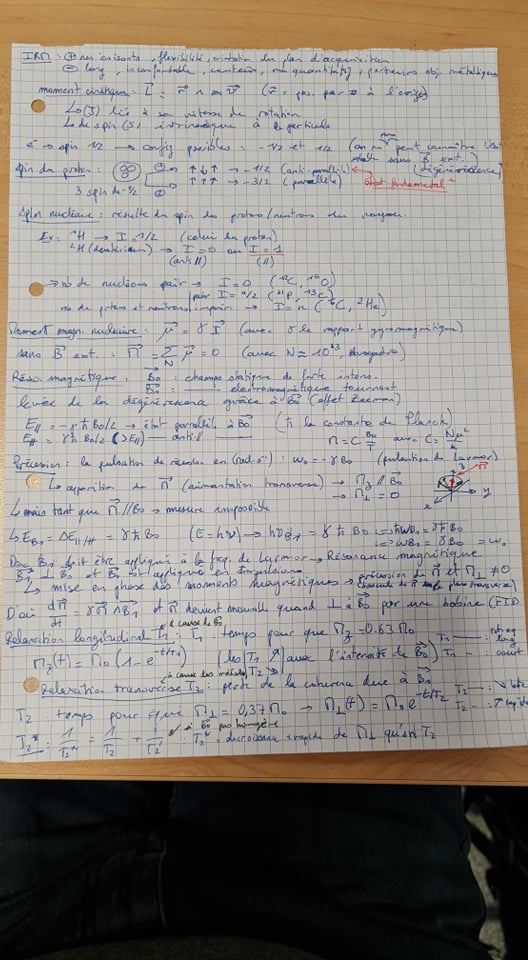 IRM : ⊕ non ionisante, flexibilité, orientation du plan d'acquisition
⊖ long, inconfortable, , non quantitatif, porteurs obj. métalliques
moment cinétique : L = r ∧ m v (r = pos. par rr à l'origine)
↳ (J) lié à sa vitesse de rotation
↳ de spin (S) intrinsèque à la particule
e⁻ → spin 1/2 → config possibles : -1/2 et 1/2 (on ne peut connaître l'état
sans B ext.) [dégénérescence]
Spin du proton : → ↑↓↑ → -1/2 (anti-parallèle)
3 spin de 1/2 ↑↑↑ → -3/2 (parallèle) état fondamental
Spin nucléaire : résulte du spin des protons/neutrons du noyau.
Ex : ¹H → I = 1/2 (celui du proton)
²H (deutérium) → I = 0 ou I = 1
(anti //) (//)
→ nb de nucléons pair → I = 0 (¹²C, ¹⁶O)
impair I = n/2 (³¹P, ¹³C)
nb de protons et neutrons impair → I = n (
Moment magn. nucléaire : μ = γ I (avec γ le rapport gyromagnétique)
sans B ext. : M = Σ μ = 0 (avec N ≈ 10²³, Avogadro)
N
Réso. magnétique : B₀ : champs statique de forte intens.
B₁ : électromagnétique tournant
levée de la dégénérescence grâce à B₀ (effet Zeeman)
E// = -γ ħ B₀/2 → état parallèle à B₀ (ħ la constante de Planck)
E = γ ħ B₀/2 (> E//) — anti // — M = C B₀/T avec C = Nμ²/k
Précession : la pulsation de (rad.s⁻¹) : ω₀ = -γ B₀ (pulsation de Larmor)
↳ apparition de M (aimantation transverse) → Mz // B₀
→ M⊥ = 0
z M
x y
↳ mais tant que M // B₀ → mesure impossible
↳ E_B₁ = ΔE = γ ħ B₀ (E = hν) → hν_B₁ = γ ħ B₀ <=> ħω_B₁ = γ ħ B₀
<=> ω_B₁ = γ B₀ = ω₀
Donc B₁ doit être appliqué à la fréq. de Larmor → Résonance magnétique
B₁ ⊥ B₀ et B₁ est appliqué en impulsions
↳ mise en phase des moments magnétiques → précession de M et M⊥ ≠ 0
(bascule de M plan transverse)
D'où dM/dt = γ M ∧ B₁ et M devient mesurable quand ⊥ à B₀ par une bobine (FID)
à cause de B₀
Relaxation longitudinale T₁ : T₁ : temps pour que Mz = 0.63 M₀ T₁ — : long
Mz(t) = M₀ (1 - e^(-t/T₁)) (les T₁ ↗ avec l'intensité de B₀) T₁ — : court
à cause des
Relaxation transverse T₂ : perte de la cohérence due à B₁
T₂ : temps pour que M⊥ = 0,37 M₀ → M⊥(t) = M₀ e^(-t/T₂) T₂ — : ↘ lente
T₂ — : rapide
si B₀ pas homogène
T₂* : 1/T₂* = 1/T₂ + 1/T₂' : T₂* : décroissance + rapide de M⊥ qu'en T₂